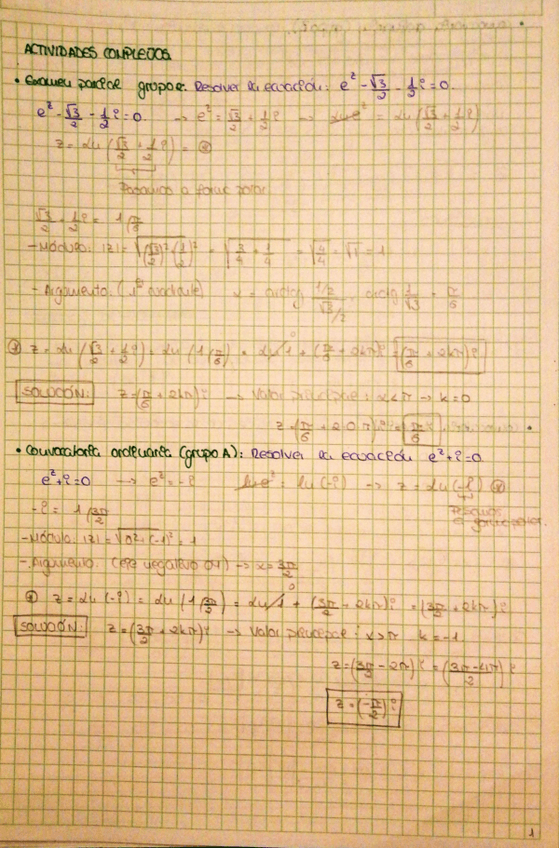 ACTIVIDADES COMPLEJOS
• Examen parcial grupo E: Resolver la ecuación: e^z - √3/2 - 1/2 i = 0.
e^z - √3/2 - 1/2 i = 0. → e^z = √3/2 + 1/2 i → ln e^z = ln(√3/2 + 1/2 i)
z = ln(√3/2 + 1/2 i) = ⊛
Pasamos a forma polar
√3/2 + 1/2 i = 1 π/6
- Módulo: |z| = √((√3/2)² + (1/2)²) = √(3/4 + 1/4) = √(4/4) = √1 = 1
- Argumento: (1º cuadrante) α = arctg (1/2)/(√3/2) = arctg 1/√3 = π/6
⊛ z = ln(√3/2 + 1/2 i) = ln(1 π/6) = ln 1 + (π/6 + 2kπ)i = (π/6 + 2kπ)i
SOLUCIÓN: z = (π/6 + 2kπ)i → Valor principal: α < π → k = 0
z = (π/6 + 2·0·π)i = π/6 i
• Convocatoria ordinaria (grupo A): Resolver la ecuación e^z + i = 0
e^z + i = 0 → e^z = -i ln e^z = ln(-i) → z = ln(-i) ⊛
Pasamos
a forma polar.
-i = 1 3π/2
- Módulo: |z| = √(0² + (-1)²) = 1
- Argumento: (eje negativo OY) → α = 3π/2
⊛ z = ln(-i) = ln(1 3π/2) = ln 1 + (3π/2 + 2kπ)i = (3π/2 + 2kπ)i
SOLUCIÓN: z = (3π/2 + 2kπ)i → Valor principal: α > π k = -1
z = (3π/2 - 2π)i = (3π - 4π / 2)i
z = (-π/2)i
1